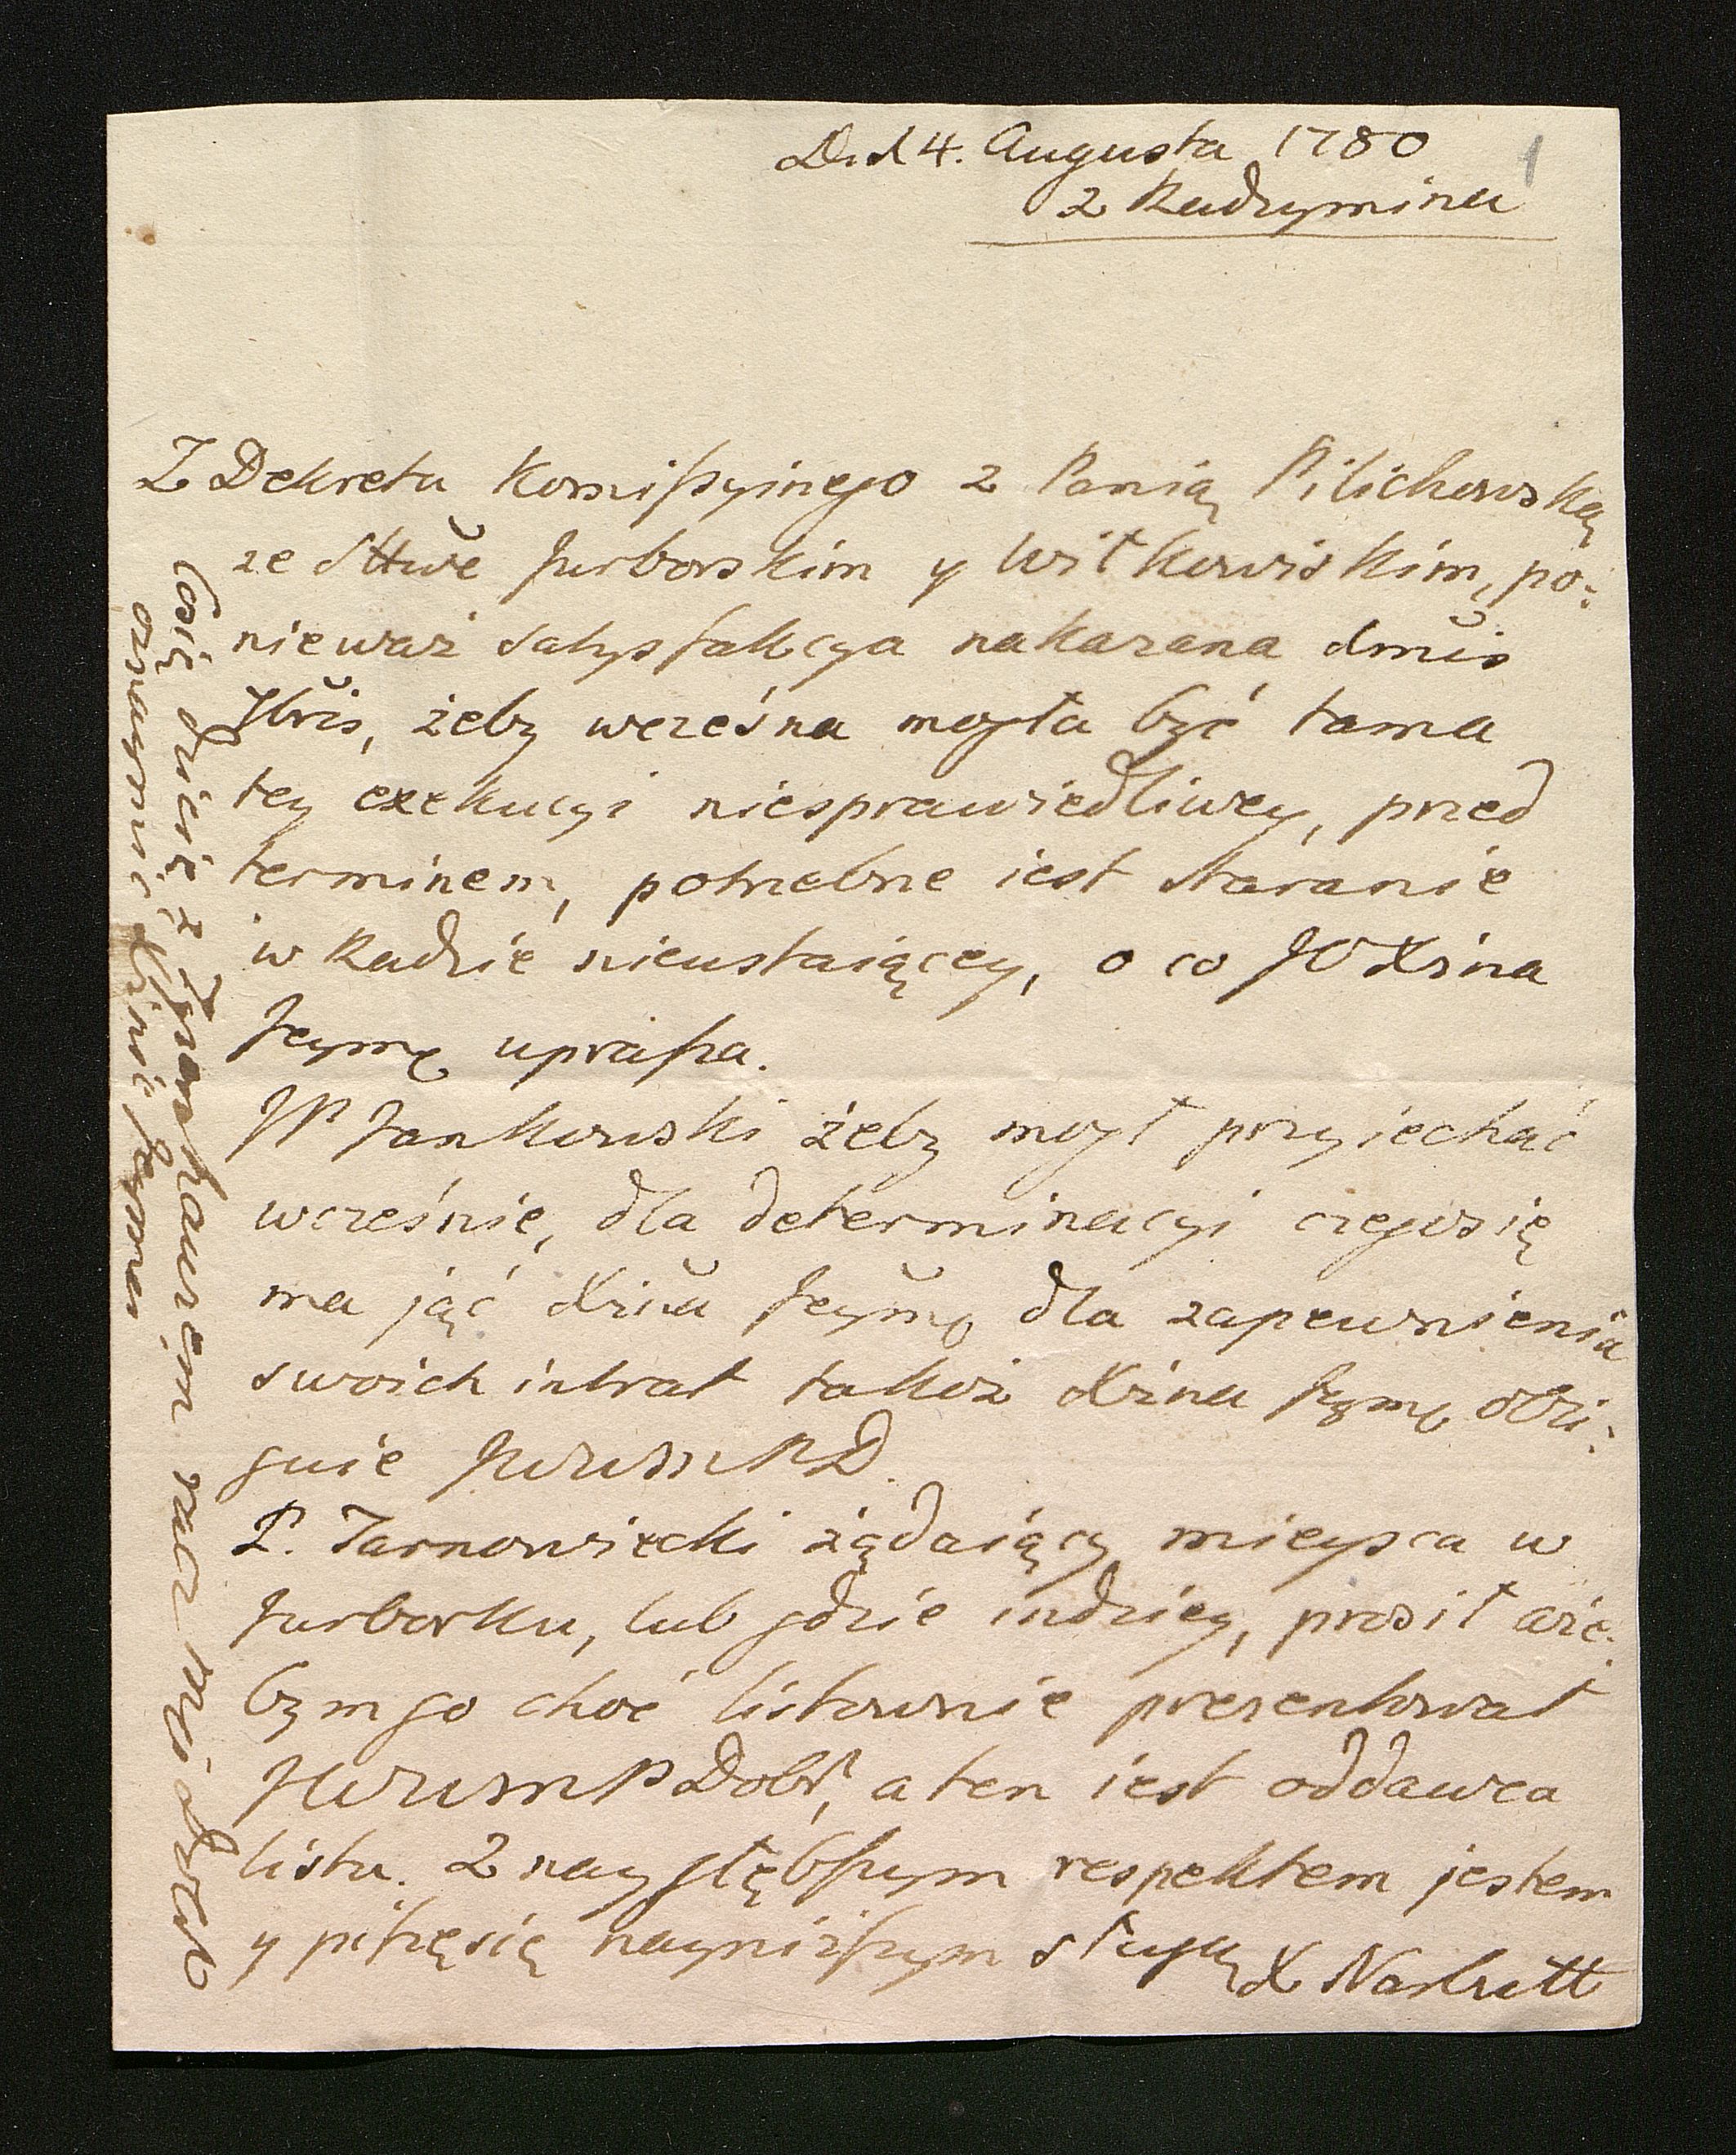 D. d 4. Augusta 1780
z Radzymina
1
Z Dekretu Komissyinego z Panią Pilichowską
ze Sttwe Jurborskim y Wiłkowiskim, po:
nieważ satysfakcya nakazana dnuis
Xbris, żeby wcześna mogła być tama
tey exekucyi niesprawiedliwey, przed
terminem, potrzebne iest staranie
w Radzie nieustaiącey, o co JO Xżna
Jeymę uprasza.
JP Jankowski żeby mogł przyiechać
wcześnie, dla determinacyi czegosię
ma jąć Xżna Jeymę dla zapewnienia
swoich intrat takoż Xżna Jeymę obli:
guie JWWMPD.
P. Tarnowiecki żądaiący mieysca w
Jurborku, lub gdzie indziey, prosił aże:
bym go choć listownie prezentował
JWWMPDobr, a ten iest oddawca
listu. Z naygłębszym respektem jestem
y piszęsię nayniższym sługą X Narbutt
Cosię dzieię z Jpanhauzem racz mi WPD
oznaymić Xżnie Jeymci